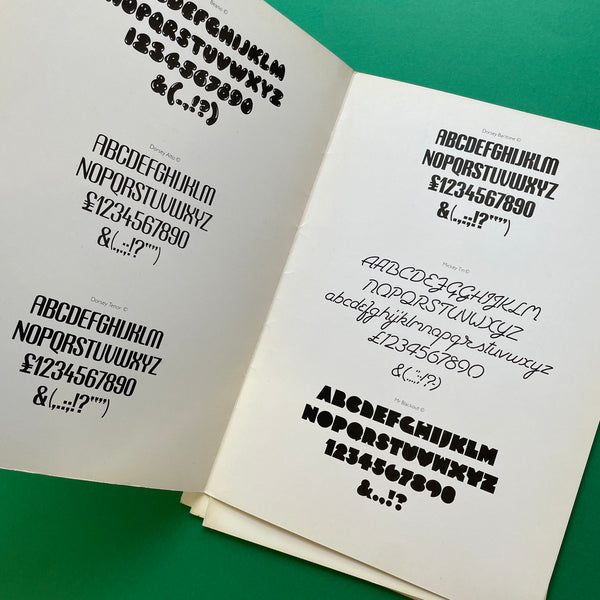 Beano ©
DEFGHIJKLM
NOPQRSTUVWXYZ
1234567890
&(.,!?)
Dorsey Alto ©
ABCDEFGHIJKLM
NOPQRSTUVWXYZ
£1234567890
&(.,:;!?"")
Dorsey Tenor ©
ABCDEFGHIJKLM
NOPQRSTUVWXYZ
£1234567890
&(.,:;!?"")
Dorsey Baritone ©
ABCDEFGHIJKLM
NOPQRSTUVWXYZ
£1234567890
&(.,:;!?"")
Mickey ©
AABCDEFGGHIJKLM
NOPQRSTUVWXYZ
abcdefghijklmnopqrstuvwxyz
£1234567890
&(.,:;!?)
Mr Blackout ©
ABCDEFGHIJKLM
NOPQRSTUVWXYZ
1234567890
&.,!?